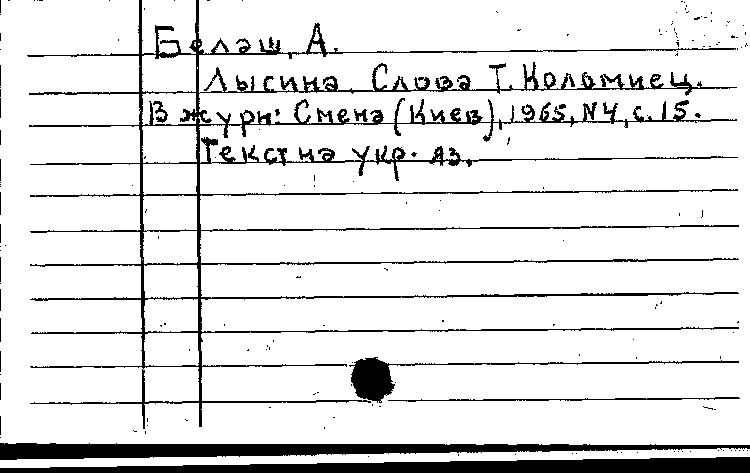 Белаш, А.
Лысина. Слова Т. Коломиец.
В журн: Смена (Киев), 1965, N4, с. 15.
Текст на укр. яз.